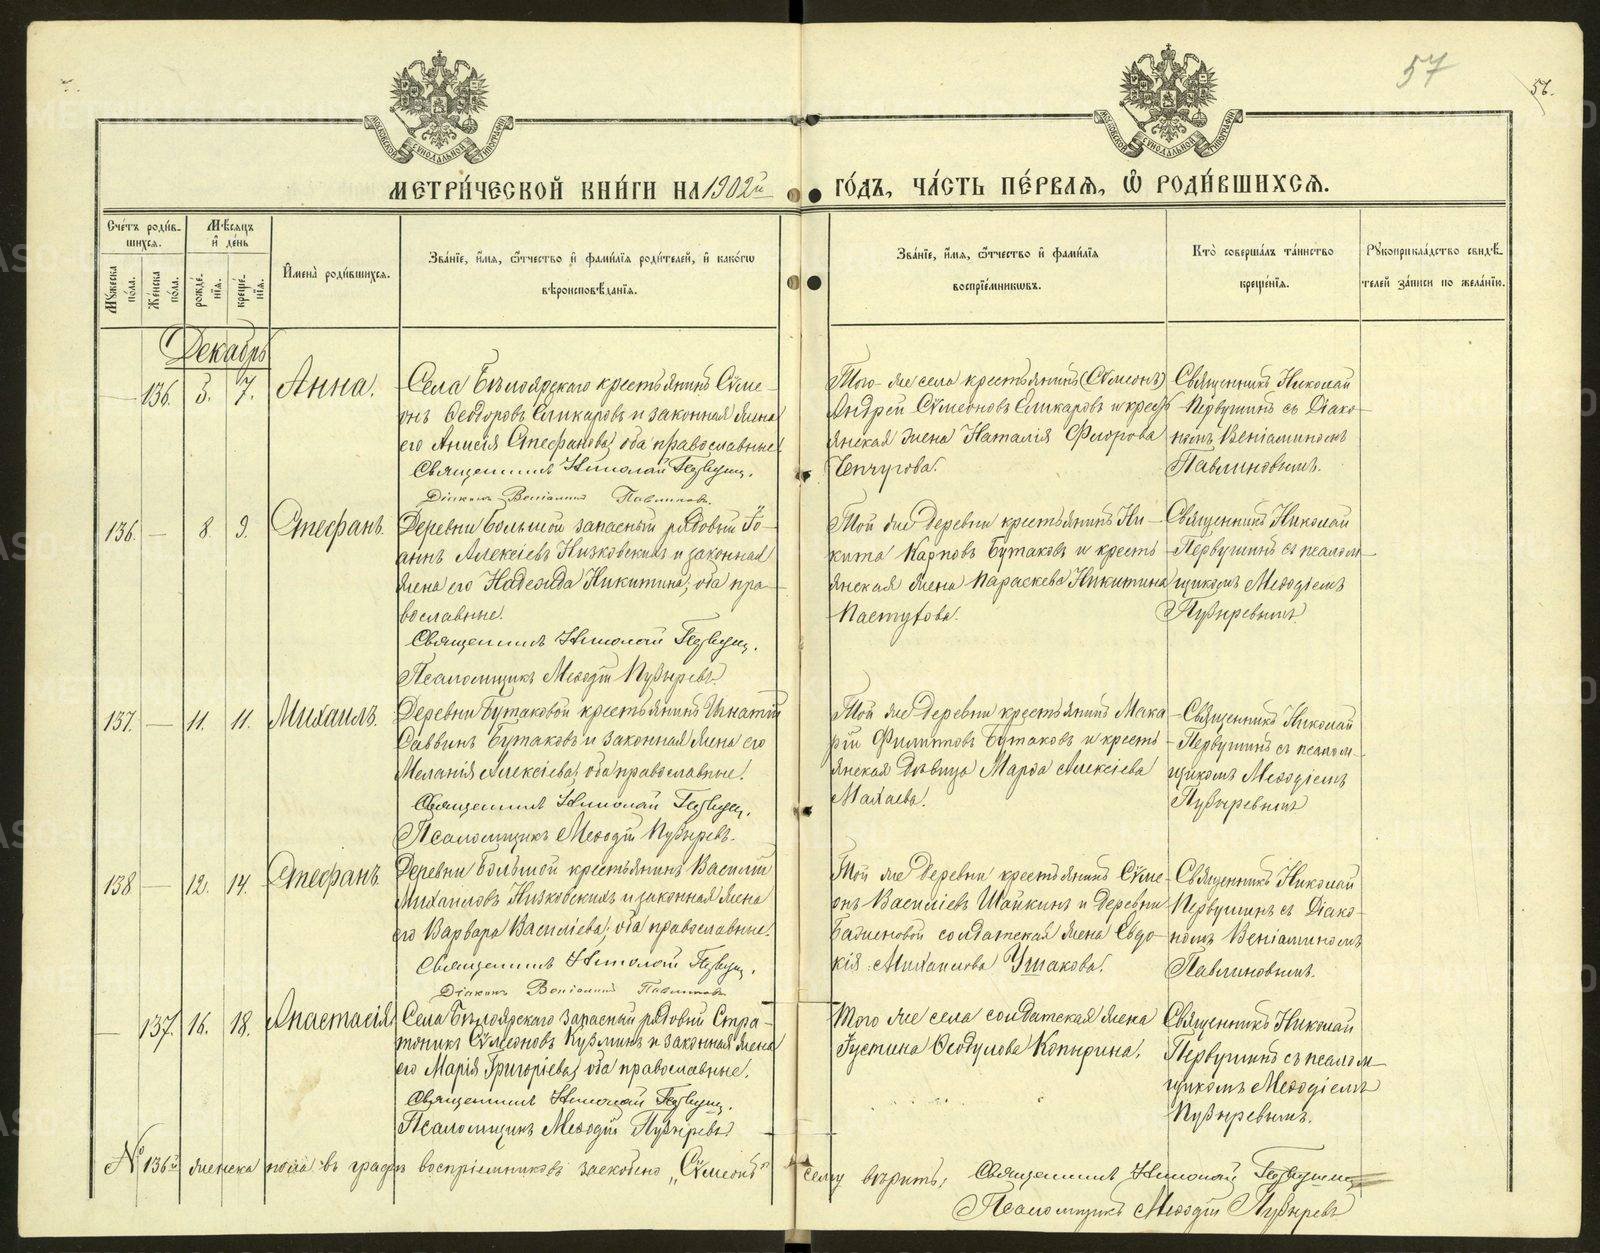 57
56.
МОСКОВСКОЙ СѴНОДАЛЬНОЙ ТИПОГРАФІИ
МОСКОВСКОЙ СѴНОДАЛЬНОЙ ТИПОГРАФІИ
МЕТРИ́ЧЕСКОЙ КНИ́ГИ НА 1902й ГО́ДЪ, ЧА́СТЬ ПЕ́РВАЯ, Ѽ РОДИ́ВШИХСЯ.
Сче́тъ роди́в-
шихся.
Мѣ́сяцъ
и҆ де́нь
Мꙋ́жеска по́ла.
Же́нска по́ла.
рожде́нїя.
креще́нїя.
И҆мена̀ роди́вшихся.
Зва́нїе, и҆́мя, ѻ҆́тчество и҆ фами́лїя роди́телей, и҆ како́гѡ
вѣроисповѣ́данїя.
Зва́нїе, и҆́мя, ѻ҆́тчество и҆ фами́лїя
воспрїе́мникѡвъ.
Кто̀ соверша́лъ та́инство
креще́нїя.
Рꙋкоприкла́дство свидѣ́-
телей за́писи по жела́нїю.
Декабрь
— 136. 3. 7. Анна.
Села Бѣлоярскаго крестьянинъ Сѵме-
онъ Ѳеодоровъ Епикаровъ и законная жена
его Анисія Стефанова; оба православные.
Священникъ Николай Первушинъ.
Діаконъ Веніаминъ Павлиновъ.
Того-же села крестьянинъ (Сѵмеонъ)
Андрей Сѵмеоновъ Епикаровъ и кресть-
янская жена Наталія Флорова
Чепчугова.
Священникъ Николай
Первушинъ съ Діако-
номъ Веніаминомъ
Павлиновымъ.
136. — 8. 9. Стефанъ.
Деревни Большой запасный рядовый Іо-
аннъ Алексіевъ Низковскихъ и законная
жена его Надежда Никитина; оба пра-
вославные.
Священникъ Николай Первушинъ.
Псаломщикъ Меѳодій Пузыревъ.
Той же деревни крестьянинъ Ни-
кита Карповъ Бутаковъ и кресть-
янская жена Параскева Никитина
Пастухова.
Священникъ Николай
Первушинъ съ псалом-
щикомъ Меѳодіемъ
Пузыревымъ.
137. — 11. 11. Михаилъ.
Деревни Бутаковой крестьянинъ Игнатій
Саввинъ Бутаковъ и законная жена его
Меланія Алексіева; оба православные.
Священникъ Николай Первушинъ.
Псаломщикъ Меѳодій Пузыревъ.
Той же деревни крестьянинъ Мака-
рій Филипповъ Бутаковъ и кресть-
янская дѣвица Марѳа Алексіева
Малаева.
Священникъ Николай
Первушинъ съ псалом-
щикомъ Меѳодіемъ
Пузыревымъ
138 — 12. 14. Стефанъ.
Деревни Большой крестьянинъ Василій
Михаиловъ Низковскихъ и законная жена
его Варвара Василіева; оба православные.
Священникъ Николай Первушинъ.
Діаконъ Веніаминъ Павлиновъ.
Той же деревни крестьянинъ Сѵме-
онъ Василіевъ Шайкинъ и деревни
Баженовой солдатская жена Евдо-
кія Михаилова Ушакова.
Священникъ Николай
Первушинъ съ Діако-
номъ Веніаминомъ
Павлиновымъ.
— 137. 16. 18. Анастасія.
Села Бѣлоярскаго запасный рядовый Стра-
тоникъ Сѵмеоновъ Кузминъ и законная жена
его Марія Григоріева; оба православные.
Священникъ Николай Первушинъ.
Псаломщикъ Меѳодій Пузыревъ
Того же села солдатская жена
Іустина Ѳеодулова Копырина.
Священникъ Николай
Первушинъ съ псалом-
щикомъ Меѳодіемъ
Пузыревымъ.
№ 136й женска пола въ графѣ воспріемниковъ заскоблено „Сѵмеонъ“ сему вѣрить; Священникъ Николай Первушинъ
Псаломщикъ Меѳодій Пузыревъ